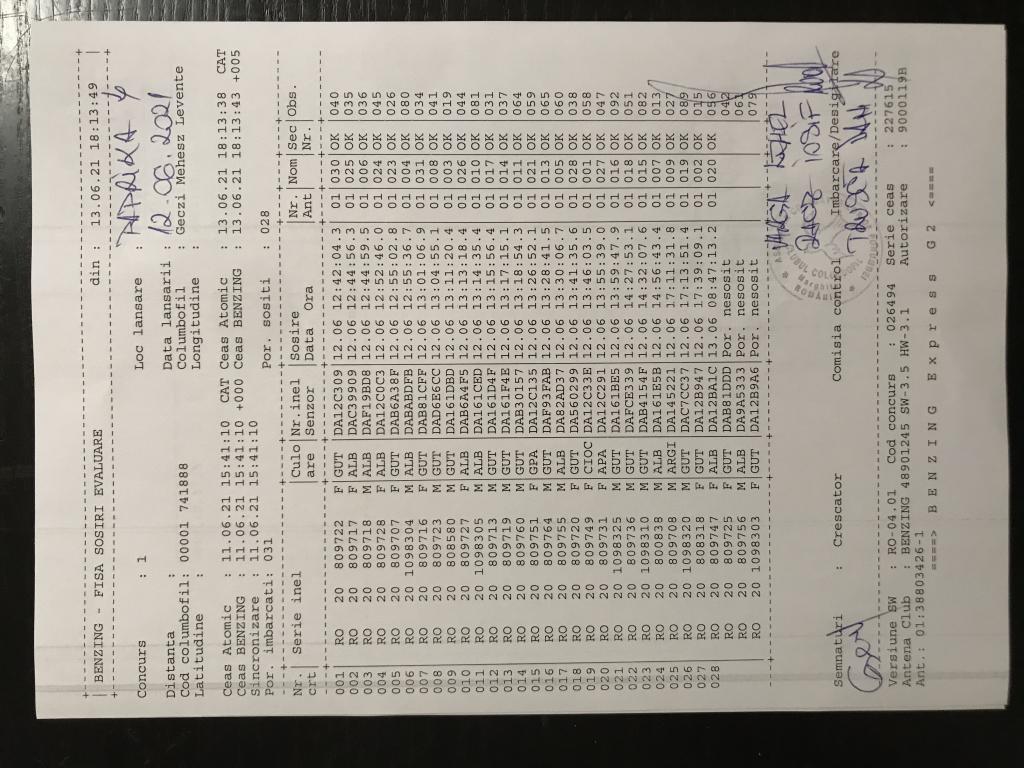 BENZING - FISA SOSIRI EVALUARE din : 13.06.21 18:13:49
Concurs : 1 Loc lansare :
Distanta : Data lansarii : 12.06.2021
Cod columbofil: 00001 741888 Columbofil : Geczi Mehesz Levente
Latitudine : Longitudine :
Ceas Atomic : 11.06.21 15:41:10 CAT Ceas Atomic : 13.06.21 18:13:38 CAT
Ceas BENZING : 11.06.21 15:41:10 +000 Ceas BENZING : 13.06.21 18:13:43 +005
Sincronizare : 11.06.21 15:41:10
Por. imbarcati: 031 Por. sositi : 028
Nr. Serie inel Culo Nr.inel Sosire Nr. Nom Sec Obs.
crt are Senzor Data Ora Ant Nr.
001 RO 20 809722 F GUT DA12C309 12.06 12:42:04.3 01 030 OK 040
002 RO 20 809717 F ALB DAC39909 12.06 12:44:56.3 01 025 OK 035
003 RO 20 809718 M ALB DAF19BD8 12.06 12:44:59.5 01 026 OK 036
004 RO 20 809728 F ALB DA12C0C3 12.06 12:52:46.3 01 024 OK 045
005 RO 20 809707 F GUT DAB6A38F 12.06 12:55:02.8 01 023 OK 026
006 RO 20 1098304 M ALB DABABDFB 12.06 12:55:36.7 01 004 OK 080
007 RO 20 809716 F GUT DAB81CFF 12.06 13:01:06.9 01 031 OK 034
008 RO 20 809723 M GUT DAD6E6CC 12.06 13:04:55.1 01 008 OK 041
009 RO 20 808580 M GUT DA161DBD 12.06 13:11:20.4 01 003 OK 019
010 RO 20 809727 F ALB DAB6A4F5 12.06 13:13:18.4 01 026 OK 044
011 RO 20 1098305 M ALB DA161CED 12.06 13:14:35.4 01 010 OK 081
012 RO 20 809713 M GUT DA161D4F 12.06 13:15:56.4 01 017 OK 031
013 RO 20 809719 M GUT DA161F4E 12.06 13:17:41.1 01 014 OK 037
014 RO 20 809760 M GUT DAB30157 12.06 13:18:54.3 01 011 OK 064
015 RO 20 809751 F GPA DA12C155 12.06 13:26:59.1 01 021 OK 059
016 RO 20 809764 M GUT DAF93FAB 12.06 13:28:41.5 01 013 OK 065
017 RO 20 809755 M ALB DA82AD37 12.06 13:30:06.7 01 005 OK 060
018 RO 20 809720 F GUT DA560299 12.06 13:41:35.6 01 028 OK 038
019 RO 20 809749 F CIOC DA12C33E 12.06 13:46:03.5 01 001 OK 058
020 RO 20 809731 F APA DA12C291 12.06 13:55:39.0 01 027 OK 047
021 RO 20 1098325 M GUT DA161BE5 12.06 13:59:47.9 01 016 OK 092
022 RO 20 809736 M GUT DAFCE339 12.06 14:27:53.1 01 018 OK 051
023 RO 20 1098310 M GUT DAB4154F 12.06 14:32:07.6 01 015 OK 082
024 RO 20 808538 M ALB DA161E5B 12.06 14:56:43.4 01 007 OK 013
025 RO 20 809708 M ARGI DA145221 12.06 17:11:31.8 01 009 OK 027
026 RO 20 1098320 M GUT DAC7CC37 12.06 17:13:51.4 01 019 OK 089
027 RO 20 808318 F GUT DA12B947 12.06 17:39:09.1 01 002 OK 015
028 RO 20 809747 F ALB DA12BA1C 13.06 08:47:13.2 01 020 OK 056
RO 20 809725 F GUT DAB81DDD Por. nesosit 042
RO 20 809756 M ALB DA9A5333 Por. nesosit 061
RO 20 1098303 F GUT DA12B9A6 Por. nesosit 079
Semnaturi : Crescator Comisia control Imbarcare/Desigilare
Versiune SW : RO-04.01 Cod concurs : 026494 Serie ceas : 227615
Antena Club : BENZING 48901245 SW-3.5 HW-3.1 Autorizare : 9000119B
Ant.: 01:38803426-1
====> B E N Z I N G E x p r e s s G 2 <====